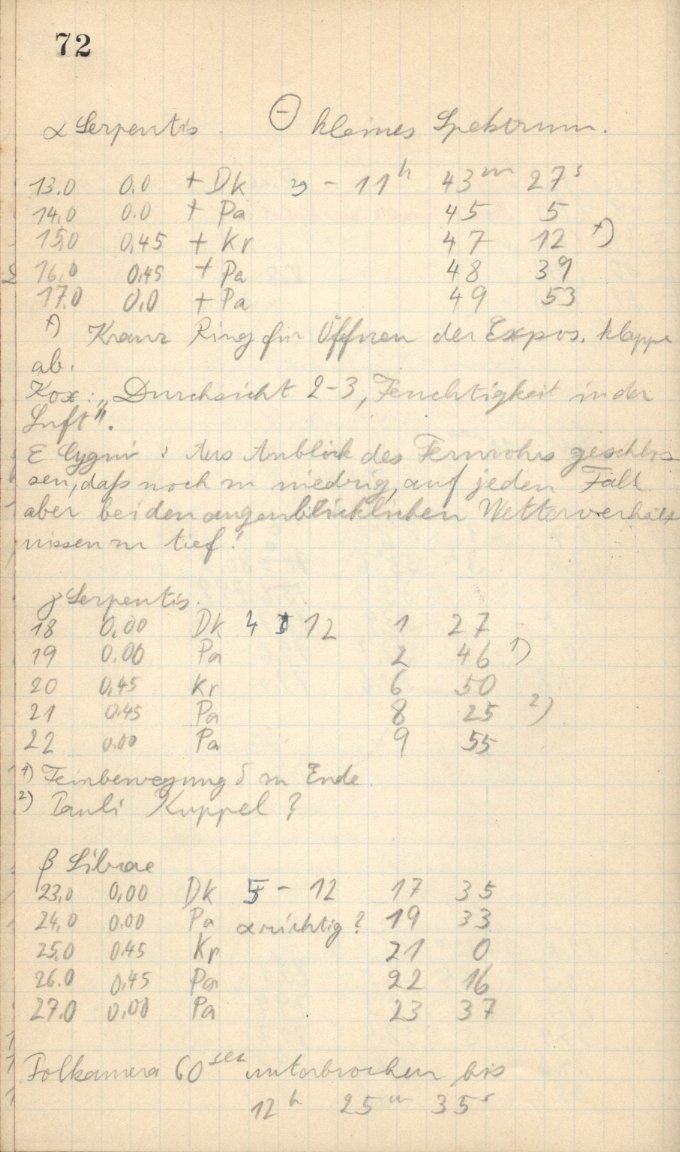 72
α Serpentis. Θ kleines Spektrum.
13.0 0.0 + Dk 3 - 11h 43m 27s
14.0 0.0 + Pa 45 5
15.0 0,45 + Kr 47 12 1)
16.0 0,45 + Pa 48 39
17.0 0.0 + Pa 49 53
1) Kranz Ring für Öffnen der Expos. klappe
ab.
Kox: „Durchsicht 2-3, Feuchtigkeit in der
Luft".
ε Cygni: Aus Anblick des Fernrohrs geschlos
sen, daß noch zu niedrig, auf jeden Fall
aber bei den augenblicklichen Wetterverhält
nissen zu tief!
γ Serpentis.
18 0,00 Dk 4 12 1 27
19 0.00 Pa 2 46 1)
20 0,45 Kr 6 50
21 0,45 Pa 8 25 2)
22 0.00 Pa 9 55
1) Feinbewegung δ zu Ende
2) Pauli Kuppel?
β Librae
23,0 0,00 Dk 5 - 12 17 35
24,0 0.00 Pa α richtig? 19 33
25.0 0,45 Kr 21 0
26.0 0,45 Pa 22 16
27.0 0,00 Pa 23 37
Polkamera 60sec unterbrochen bis
12h 25m 35s